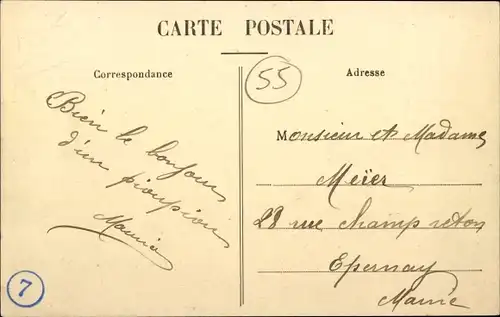 CARTE POSTALE
Correspondance
Adresse
55
Bien le bonjour
d'un pioupiou
Maurice
Monsieur et Madame
Meïer
28 rue Champ reton
Epernay
Marne
7